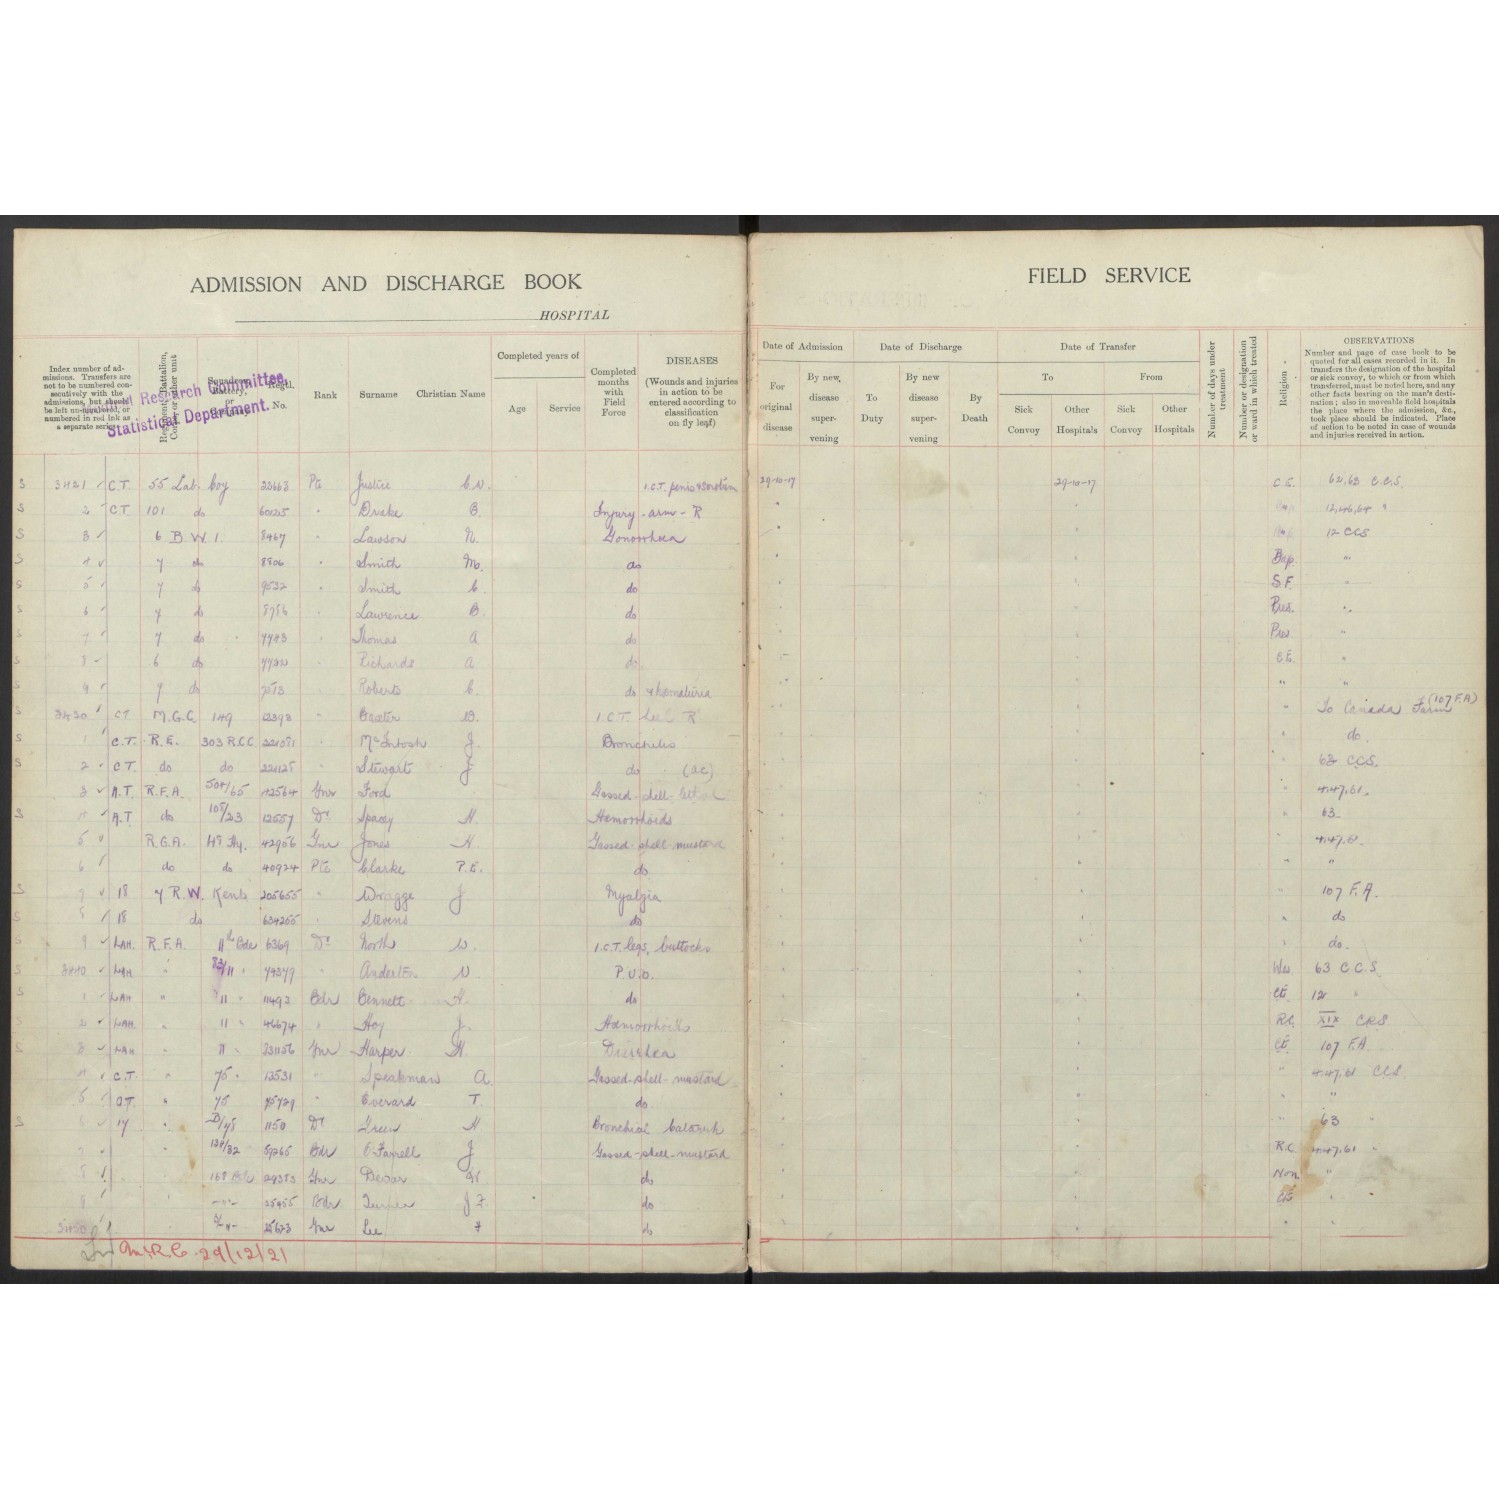 ADMISSION AND DISCHARGE BOOK
HOSPITAL
FIELD SERVICE
Index number of admissions. Transfers are not to be numbered consecutively with the admissions, but should be left un-numbered, or numbered in red ink as a separate series
Regiment, Battalion, Corps or other unit
Squadron, Battery, or Company
Regtl. No.
Rank
Surname
Christian Name
Completed years of
Age
Service
Completed months with Field Force
DISEASES
(Wounds and injuries in action to be entered according to classification on fly leaf)
Research Committee,
Statistical Department.
Date of Admission
For original disease
By new disease supervening
Date of Discharge
To Duty
By new disease supervening
By Death
Date of Transfer
To
From
Sick Convoy
Other Hospitals
Sick Convoy
Other Hospitals
Number of days under treatment
Number or designation or ward in which treated
Religion
OBSERVATIONS
Number and page of case book to be quoted for all cases recorded in it. In transfers the designation of the hospital or sick convoy, to which or from which transferred, must be noted here, and any other facts bearing on the man's destination; also in moveable field hospitals the place where the admission, &c., took place should be indicated. Place of action to be noted in case of wounds and injuries received in action.
S 3421 C.T. 55 Lab. Coy 23663 Pte Justice C.N. I.C.T. penis & scrotum 29-10-17 29-10-17 C.E. 62,63 C.C.S.
S 2 C.T. 101 do Drake B. Injury - arm - R 12,46,64 "
S 3 6 B W I. 8467 " Lawson N. Gonorrhoea 12 CCS
S 4 7 do 8806 " Smith M. do Bap. "
S 5 7 do 9532 " Smith C. do S.F. "
S 6 7 do Lawrence B. do Pres. "
S 7 7 do Thomas A do Pres. "
S 8 6 do Richards A. do C.E. "
S 9 7 do Roberts C. do & hematuria " "
S 3430 CT M.G.C. 149 Baxter I.C.T. heel R " To Canada Farm (107 F.A)
S 1 C.T. R.E. 303 R.C.C. 221091 McIntosh J. Bronchitis " do.
S 2 C.T. do do 221125 Stewart J. do (ac) " 63 C.C.S.
3 A.T. R.F.A. 504/65 42564 Gnr Ford Gassed - shell " 4.47.61.
S 4 A.T do 12557 Dr Spacey H. Hæmorrhoids " 63.
5 R.G.A. Hy. 42906 Gnr Jones H Gassed - shell - mustard " 4.47.61.
6 do do 40924 Pte Clarke P.E. do " "
S 7 18 7 R.W. Kents 205655 " Wragge J Myalgia " 107 F.A.
S 18 do 634255 " Stevens do " do
S 9 LAH. R.F.A. 11th Bde 6369 Dr North W. I.C.T. legs, buttocks " do.
S 3440 LAH " 83/11 " Anderton P.U.O. Wes 63 C.C.S.
S 1 LAH " 11 " 11492 Bdr Bennett A. do CE 12 "
S 2 LAH. " 11 " 46674 " Hoy J. Hæmorrhoids R.C. XIX CRS
S 3 LAH " 11 " Gnr Harper H. Diarrhea CE 107 F.A.
4 C.T. " 75 " 13531 " Speakman A. Gassed - shell - mustard " 4.47.61 CCS
5 " 75 " Everard T. do " "
S 17 " 1150 Dr Green H Bronchial Catarrh " 63 "
Bdr O'Farrell J Gassed - shell - mustard R.C. 4.47.61 "
Gnr Dewar do Non "
9 Bdr Turner J F. do CE " "
3450 Gnr Lee F do " "
M.R.C. 29/12/21